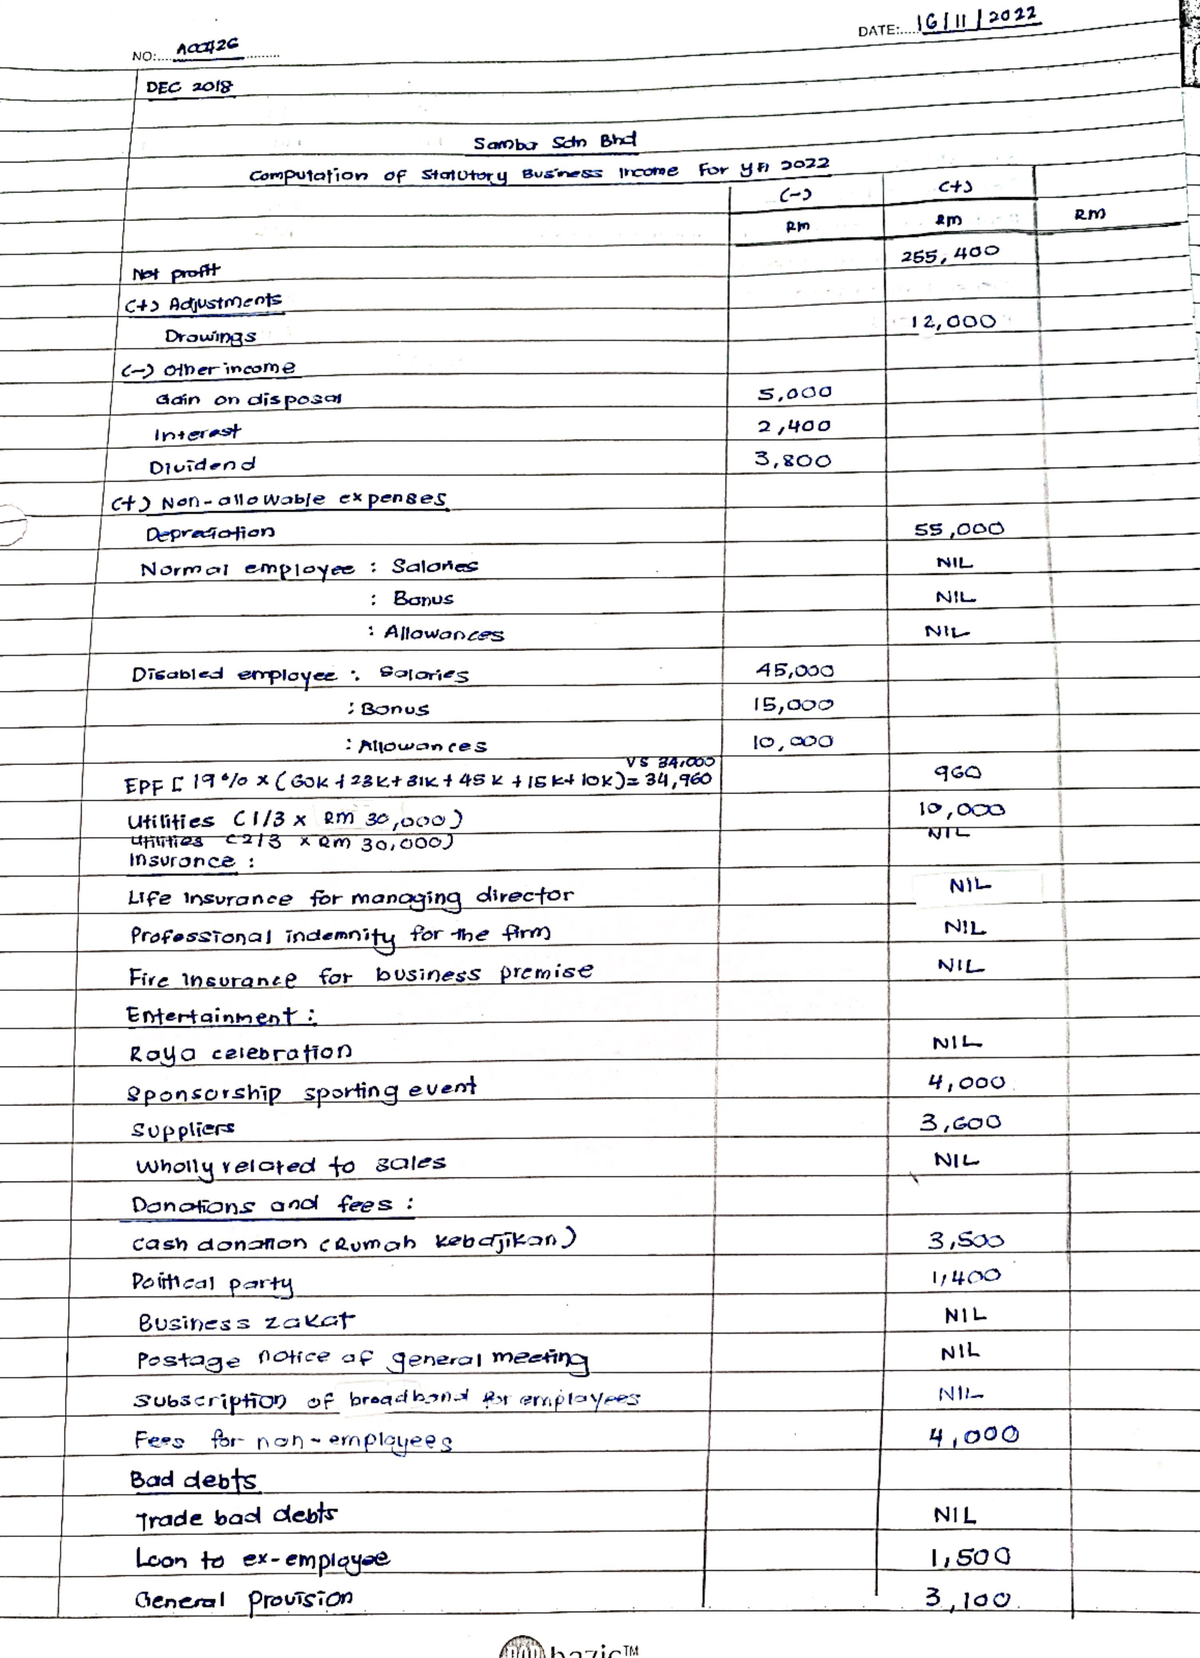 NO:.... ACC426 ..........
DATE:....16/11/2022
DEC 2018
Samba Sdn Bhd
Computation of Statutory Business Income For YA 2022
(-) (+)
RM RM RM
Net profit 255,400
(+) Adjustments
Drawings 12,000
(-) Other income
Gain on disposal 5,000
Interest 2,400
Dividend 3,800
(+) Non-allowable expenses
Depreciation 55,000
Normal employee : Salaries NIL
: Bonus NIL
: Allowances NIL
Disabled employee : Salaries 45,000
: Bonus 15,000
: Allowances 10,000
VS 34,000
EPF [ 19% x (60K + 23K + 31K + 45K + 15K + 10K) = 34,960 960
Utilities (1/3 x RM 30,000) 10,000
Utilities (2/3 x RM 30,000) NIL
Insurance :
Life Insurance for managing director NIL
Professional indemnity for the firm NIL
Fire Insurance for business premise NIL
Entertainment :
Raya celebration NIL
Sponsorship sporting event 4,000
Suppliers 3,600
Wholly related to sales NIL
Donations and fees :
Cash donation (Rumah Kebajikan) 3,500
Political party 1,400
Business zakat NIL
Postage notice of general meeting NIL
Subscription of broadband for employees NIL
Fees for non-employees 4,000
Bad debts
Trade bad debts NIL
Loan to ex-employee 1,500
General provision 3,100
bazic™